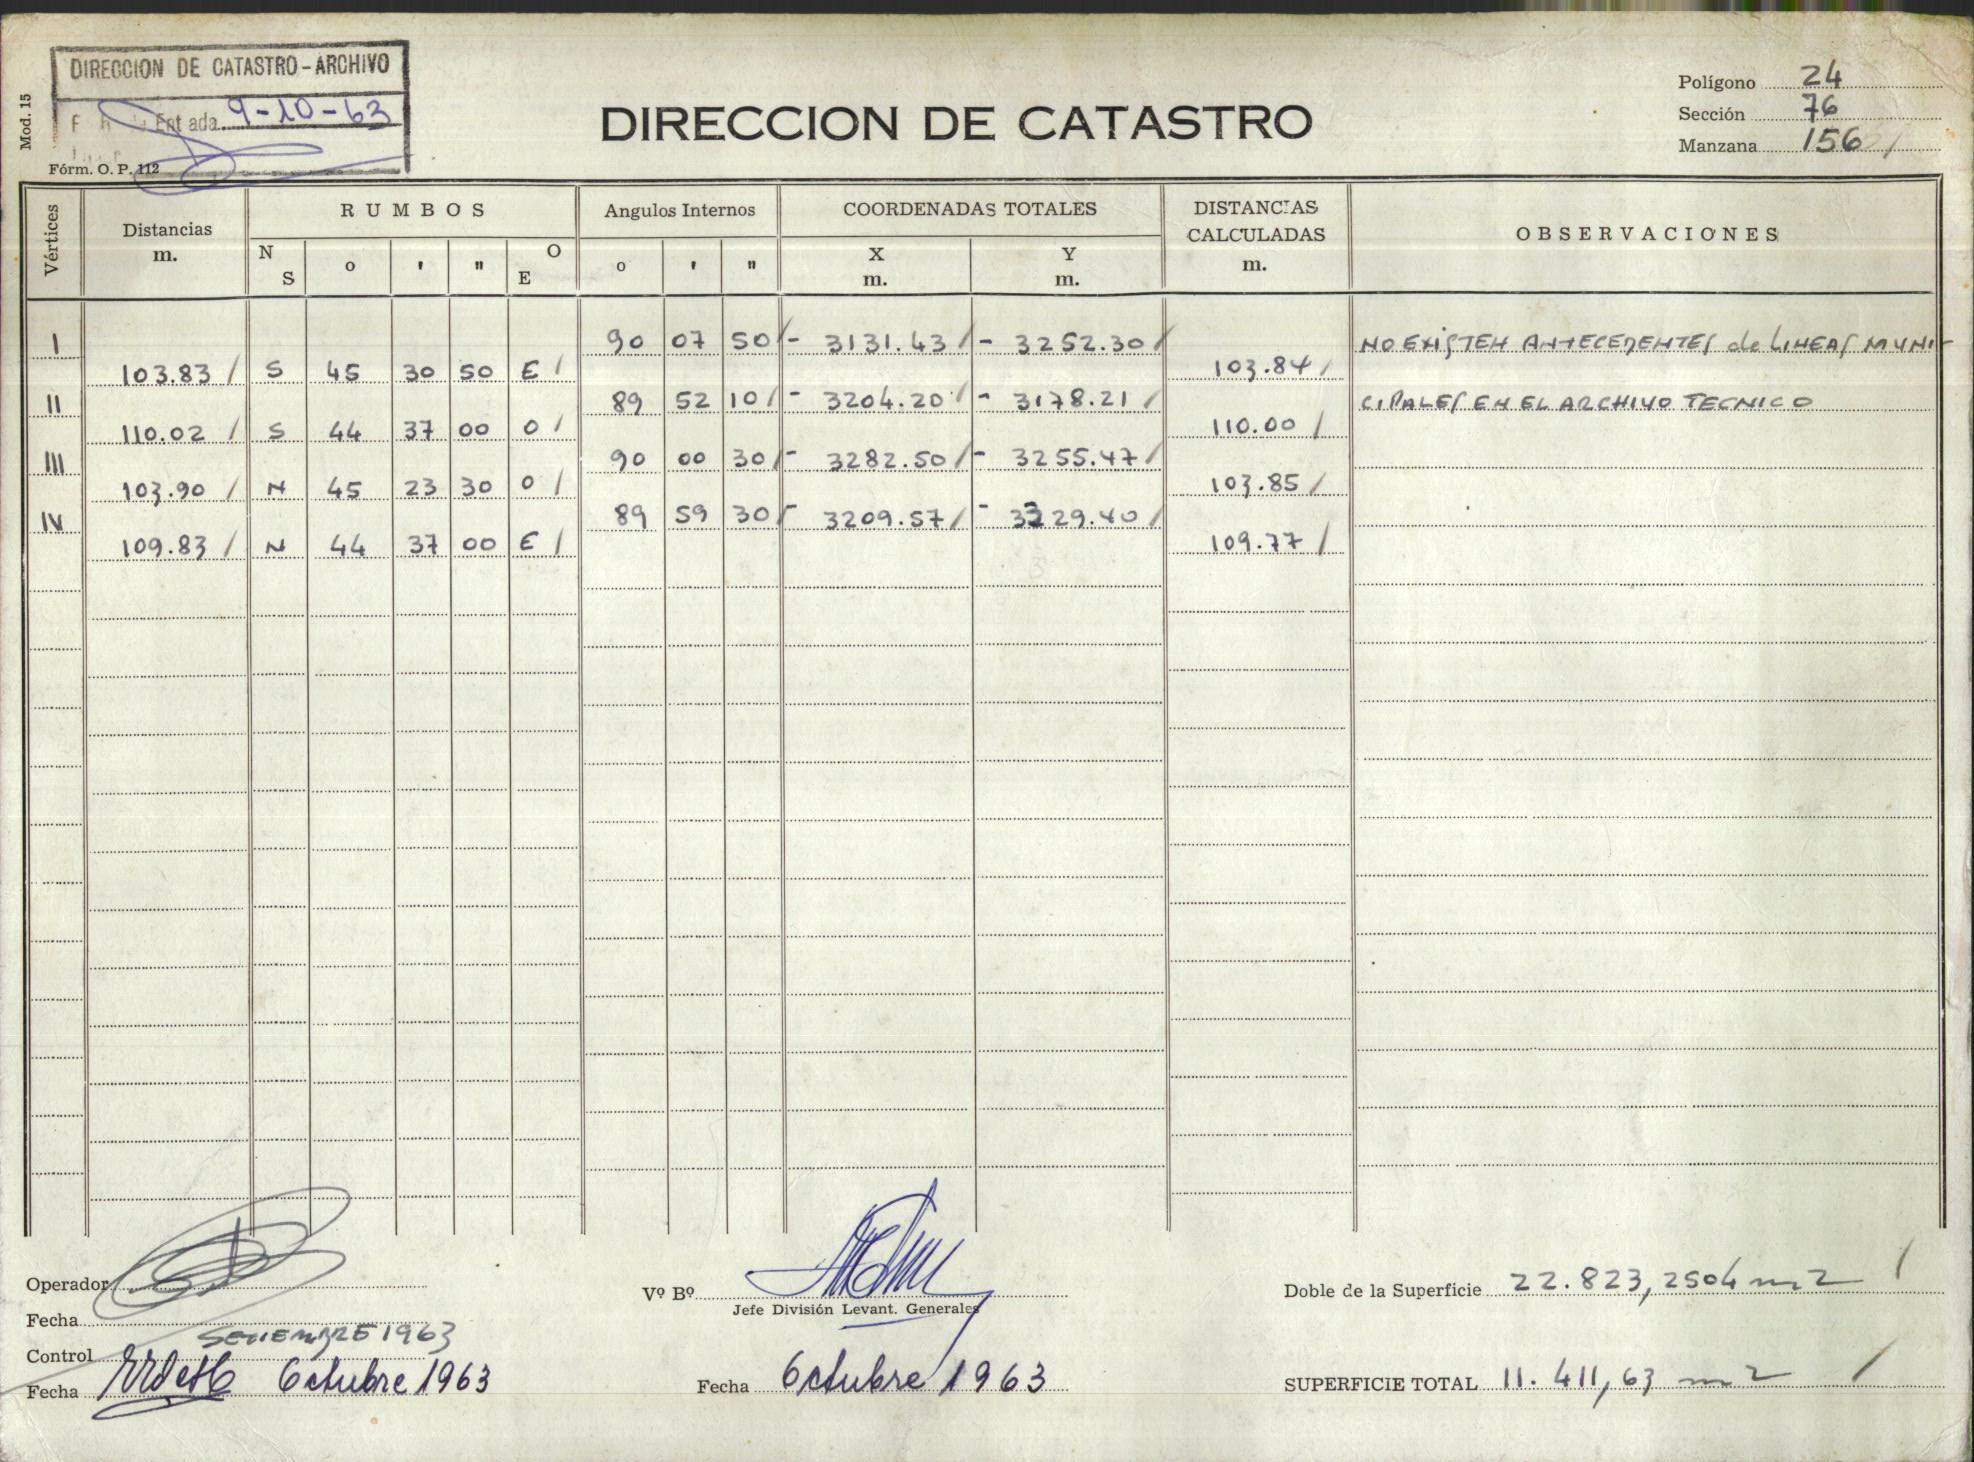 DIRECCION DE CATASTRO - ARCHIVO
Mod. 15
9-10-63
Fórm. O. P. 112
DIRECCION DE CATASTRO
Polígono 24
Sección 76
Manzana 156
Vértices
Distancias m.
RUMBOS
N S
o ' "
O E
Angulos Internos
o ' "
COORDENADAS TOTALES
X m.
Y m.
DISTANCIAS CALCULADAS m.
OBSERVACIONES
I 90 07 50 - 3131.43 - 3252.30 NO EXISTEN ANTECEDENTES de LINEAS MUNI-
103.83 S 45 30 50 E 103.84
II 89 52 10 - 3204.20 - 3178.21 CIPALES EN EL ARCHIVO TECNICO
110.02 S 44 37 00 O 110.00
III 90 00 30 - 3282.50 - 3255.47
103.90 N 45 23 30 O 103.85
IV 89 59 30 - 3209.57 - 3329.40
109.83 N 44 37 00 E 109.77
Operador
Fecha SETIEMBRE 1963
Control
Fecha Octubre 1963
Vº Bº
Jefe División Levant. Generales
Fecha Octubre 1963
Doble de la Superficie 22.823,2504 m2
SUPERFICIE TOTAL 11.411,63 m2